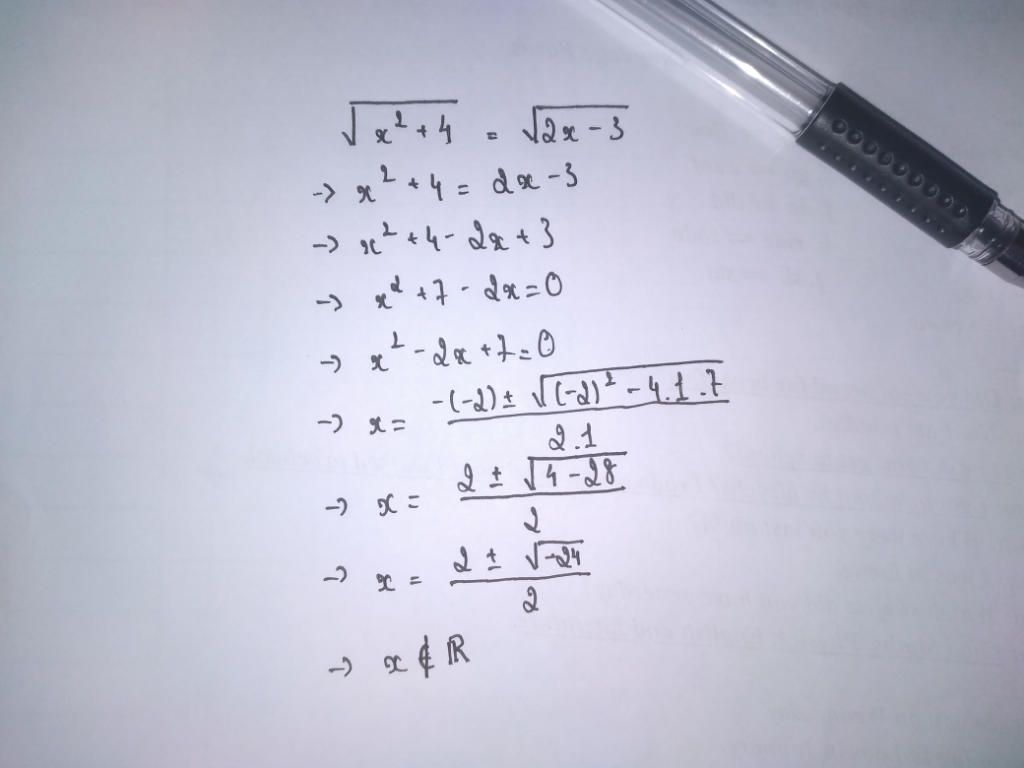 √(x² + 4) = √(2x - 3)
→ x² + 4 = 2x - 3
→ x² + 4 - 2x + 3
→ x² + 7 - 2x = 0
→ x² - 2x + 7 = 0
→ x = (-(-2) ± √((-2)² - 4.1.7)) / (2.1)
→ x = (2 ± √(4 - 28)) / 2
→ x = (2 ± √(-24)) / 2
→ x ∉ ℝ